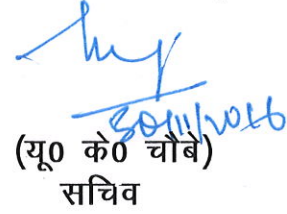 30/11/2016
(यू0 के0 चौबे)
सचिव